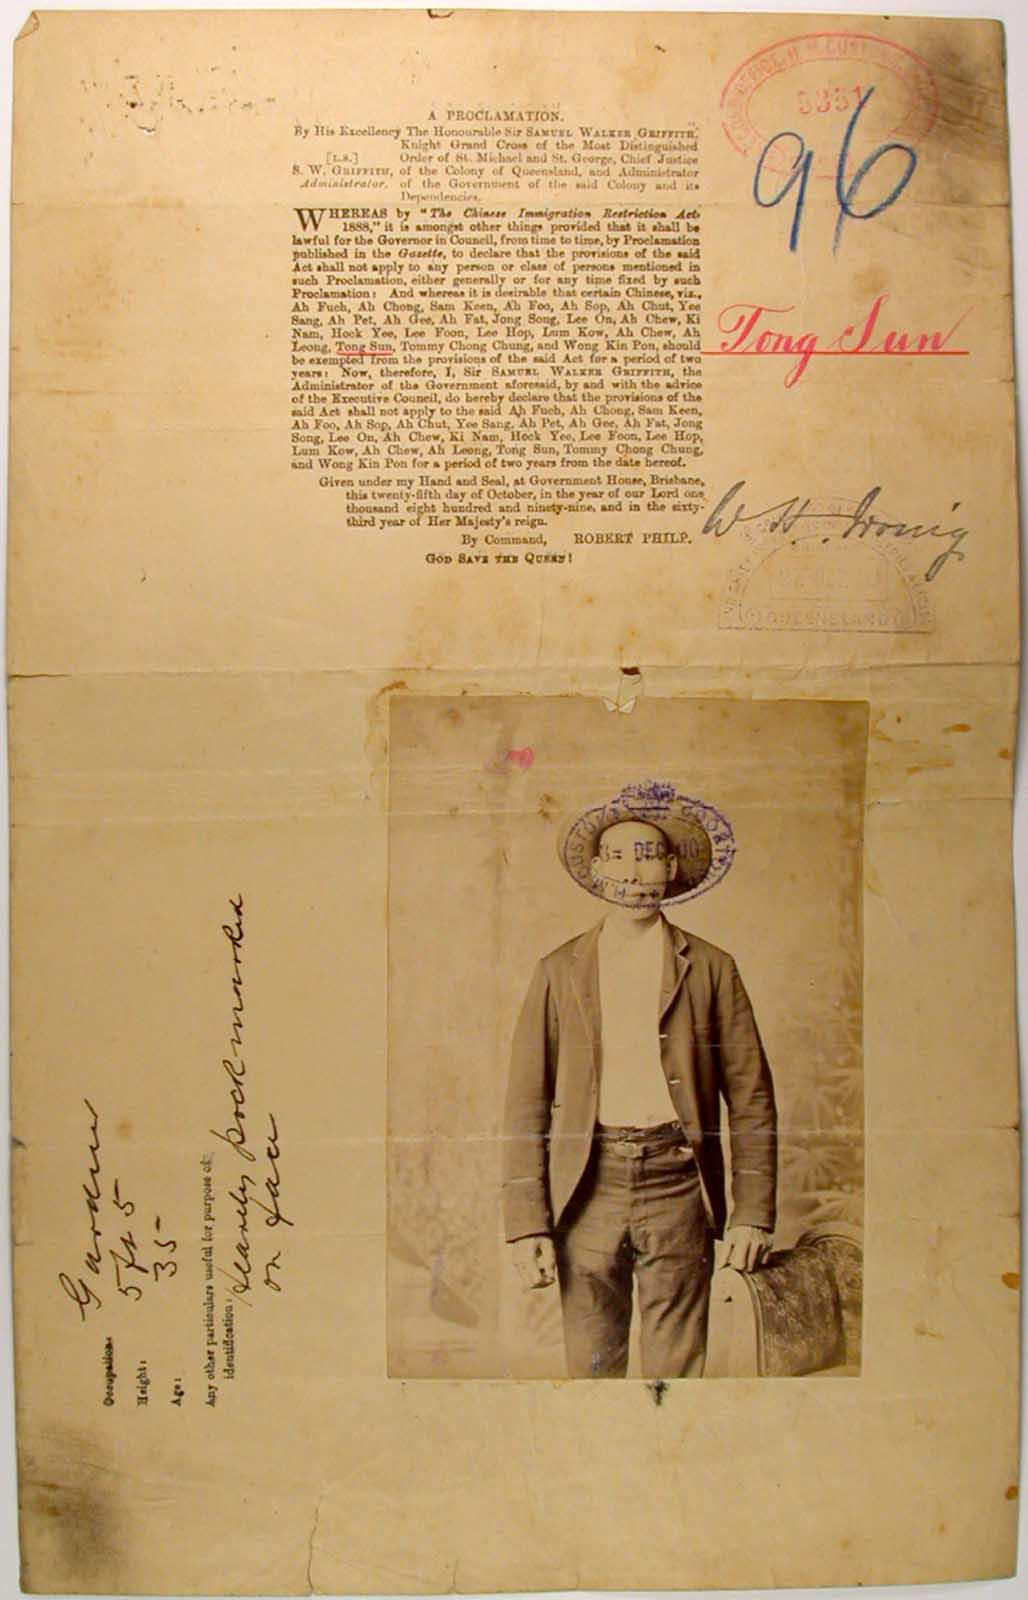 A PROCLAMATION.
By His Excellency The Honourable Sir SAMUEL WALKER GRIFFITH,
Knight Grand Cross of the Most Distinguished
[L.S.] Order of St. Michael and St. George, Chief Justice
S. W. GRIFFITH, of the Colony of Queensland, and Administrator
Administrator. of the Government of the said Colony and its
Dependencies.
WHEREAS by "The Chinese Immigration Restriction Act
1888," it is amongst other things provided that it shall be
lawful for the Governor in Council, from time to time, by Proclamation
published in the Gazette, to declare that the provisions of the said
Act shall not apply to any person or class of persons mentioned in
such Proclamation, either generally or for any time fixed by such
Proclamation: And whereas it is desirable that certain Chinese, viz.,
Ah Fuch, Ah Chong, Sam Keen, Ah Foo, Ah Sop, Ah Chut, Yee
Sang, Ah Pet, Ah Gee, Ah Fat, Jong Song, Lee On, Ah Chew, Ki
Nam, Hock Yee, Lee Foon, Lee Hop, Lum Kow, Ah Chew, Ah
Leong, Tong Sun, Tommy Chong Chung, and Wong Kin Pon, should
be exempted from the provisions of the said Act for a period of two
years: Now, therefore, I, Sir SAMUEL WALKER GRIFFITH, the
Administrator of the Government aforesaid, by and with the advice
of the Executive Council, do hereby declare that the provisions of the
said Act shall not apply to the said Ah Fuch, Ah Chong, Sam Keen,
Ah Foo, Ah Sop, Ah Chut, Yee Sang, Ah Pet, Ah Gee, Ah Fat, Jong
Song, Lee On, Ah Chew, Ki Nam, Hock Yee, Lee Foon, Lee Hop,
Lum Kow, Ah Chew, Ah Leong, Tong Sun, Tommy Chong Chung,
and Wong Kin Pon for a period of two years from the date hereof.
Given under my Hand and Seal, at Government House, Brisbane,
this twenty-fifth day of October, in the year of our Lord one
thousand eight hundred and ninety-nine, and in the sixty-
third year of Her Majesty's reign.
By Command, ROBERT PHILP.
GOD SAVE THE QUEEN!
H. M. CUSTOMS
5351
96
Tong Sun
W H Irving
QUEENSLAND
H.M. CUSTOMS
DEC 00
Occupation: Gardner
Height: 5 ft 5
Age: 35
Any other particulars useful for purpose of
identification:
pock marked
on face